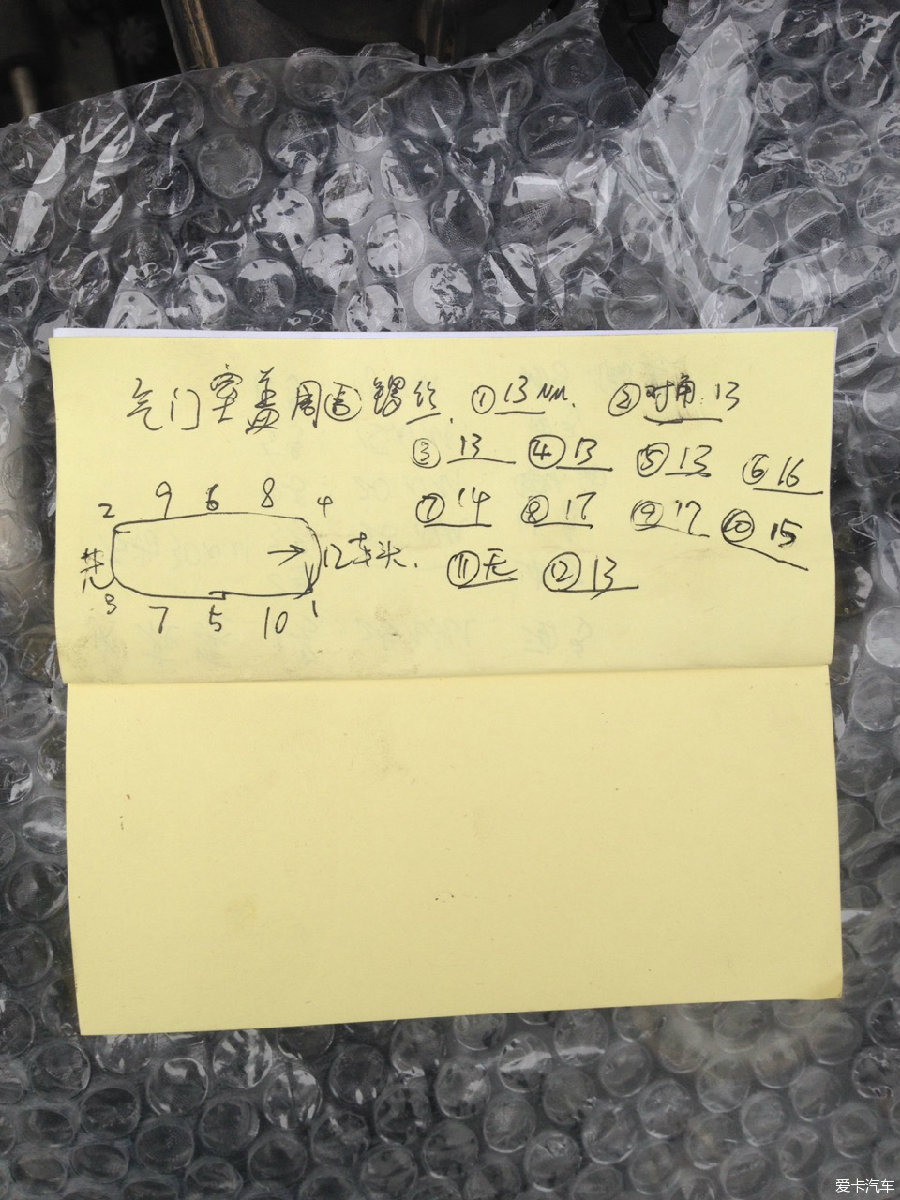 气门室盖周围螺丝. ①13mm. ②对角:13
③13 ④13 ⑤13 ⑥16
⑦14 ⑧17 ⑨17 ⑩15
⑪无 ⑫13
2 9 6 8 4
12车头.
3 7 5 10 1
爱卡汽车